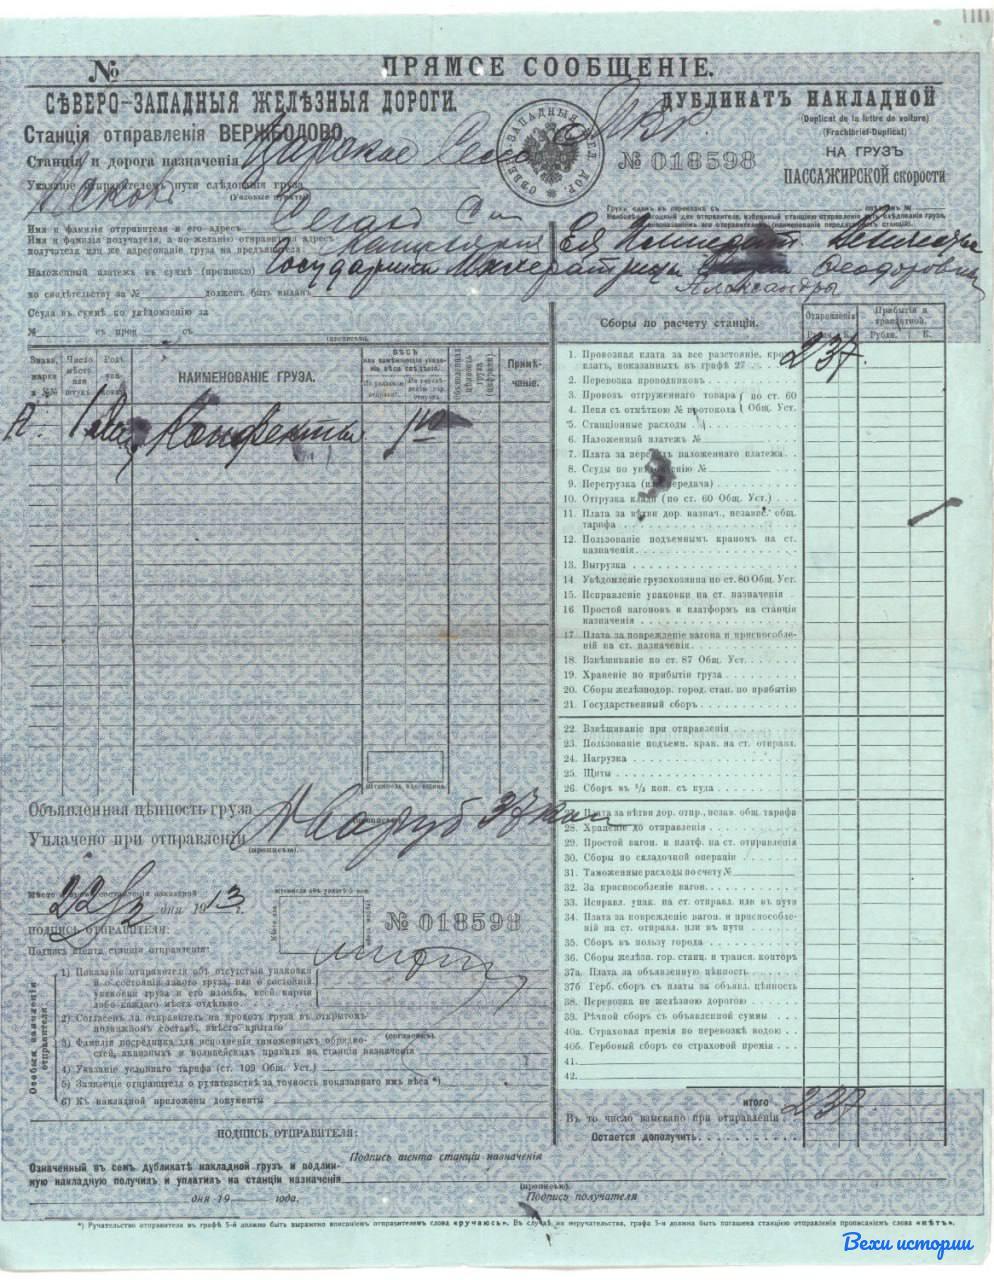 №
ПРЯМОЕ СООБЩЕНІЕ.
СѢВЕРО-ЗАПАДНЫЯ ЖЕЛѢЗНЫЯ ДОРОГИ.
Станція отправленія ВЕРЖБОЛОВО
Станція и дорога назначенія Царское Село
Указаніе отправителемъ пути слѣдованія груза
(Узловые пункты)
СѢВЕРО-ЗАПАДНЫЯ ЖЕЛ. ДОР.
ДУБЛИКАТЪ НАКЛАДНОЙ
(Duplicat de la lettre de voiture)
(Frachtbrief-Duplicat)
НА ГРУЗЪ
ПАССАЖИРСКОЙ скорости
№ 018598
Имя и фамилія отправителя и его адресъ
Имя и фамилія получателя, а по желанію отправит. адресъ
получателя или же адресованіе груза на предъявителя:
Канцелярія Ея
Наложенный платежъ въ суммѣ (прописью) Государыни Императрицы Феодоровны
Александры
по свидѣтельству за № долженъ быть выданъ
Ссуда въ сумм. по увѣдомленію за
№ съ проц съ
(прописью)
Знаки, марки и №№
Число мѣстъ или штукъ
Родъ упаковки
НАИМЕНОВАНІЕ ГРУЗА.
ВѢСЪ
Примѣчаніе.
1 Конфекты
Объявленная цѣнность груза
(прописью)
Уплачено при отправленіи Два руб 37 коп
(прописью).
Мѣсто и время составленія накладной
22 дня 1913 г.
ПОДПИСЬ ОТПРАВИТЕЛЯ:
Подпись агента станціи отправленія:
№ 018598
Особыя заявленія отправителя:
1) Показаніе отправителя объ отсутствіи упаковки
и о состояніи самого груза, или о состояніи
упаковки груза и его пломбѣ, всей партіи
либо каждаго мѣста отдѣльно
2) Согласенъ ли отправитель на провозъ груза въ открытомъ
подвижномъ составѣ, вмѣсто крытаго
(согласенъ)
3) Фамилія посредника для исполненія таможенныхъ обрядностей, акцизныхъ и полицейскихъ правилъ на станціи назначенія
4) Указаніе условнаго тарифа (ст. 109 Общ. Уст.)
5) Заявленіе отправителя о ручательствѣ за точность показаннаго имъ вѣса *)
6) Къ накладной приложены документы
ПОДПИСЬ ОТПРАВИТЕЛЯ:
Сборы по расчету станціи.
Отправленія
Прибытія и транзитной.
Рубли. К.
Рубли. К.
1. Провозная плата за все разстояніе, кромѣ
платъ, показанныхъ въ графѣ 27 237.
2. Перевозка проводниковъ
3. Провозъ отгруженнаго товара
4. Пеня съ отмѣткою № протокола
по ст. 60
Общ. Уст.
5. Станціонные расходы
6. Наложенный платежъ №
7. Плата за переводъ наложеннаго платежа
8. Ссуды по увѣдомленію №
9. Перегрузка (или передача)
10. Отгрузка клади (по ст. 60 Общ. Уст.)
11. Плата за вѣтви дор. назнач., независ. общ.
тарифа
12. Пользованіе подъемнымъ краномъ на ст.
назначенія
13. Выгрузка
14. Увѣдомленіе грузохозяина по ст. 80 Общ. Уст.
15. Исправленіе упаковки на ст. назначенія
16. Простой вагоновъ и платформъ на станціи
назначенія
17. Плата за поврежденіе вагона и приспособленій на ст. назначенія
18. Взвѣшиваніе по ст. 87 Общ. Уст.
19. Храненіе по прибытіи груза
20. Сборы желѣзнодор. город. стан. по прибытію
21. Государственный сборъ
22. Взвѣшиваніе при отправленіи
23. Пользованіе подъемн. кран. на ст. отправл.
24. Нагрузка
25. Щиты
26. Сборъ въ ⅓ коп. съ куля
27. Плата за вѣтви дор. отпр., незав. общ. тарифа
28. Храненіе до отправленія
29. Простой вагон. и платф. на ст. отправленія
30. Сборы по складочной операціи
31. Таможенные расходы по счету №
32. За приспособленіе вагон.
33. Исправл. упак. на ст. отправл. или въ пути
34. Плата за поврежденіе вагон. и приспособленій на ст. отправл. или въ пути
35. Сборъ въ пользу города
36. Сборы желѣзн. гор. станц. и трансп. конторъ
37а. Плата за объявленную цѣнность
37б Герб. сборъ съ платы за объявл. цѣнность
38. Перевозка не желѣзною дорогою
39. Рѣчной сборъ съ объявленной суммы
40а. Страховая премія по перевозкѣ водою
40б. Гербовый сборъ со страховой преміи
41.
42.
ИТОГО 237.
Въ то число взыскано при отправленіи
Остается дополучить
Означенный въ семъ дубликатѣ накладной грузъ и подлинную накладную получилъ и уплатилъ на станціи назначенія
(прописью).
Подпись агента станціи назначенія
дня 19 года.
Подпись получателя
*) Ручательство отправителя въ графѣ 5-й должна быть выражено вписаніемъ отправителемъ слова «ручаюсь». Въ случаѣ не ручательства, графа 5-я должна быть погашена станціею отправленія прописаніемъ слова «нѣтъ».
Вехи истории